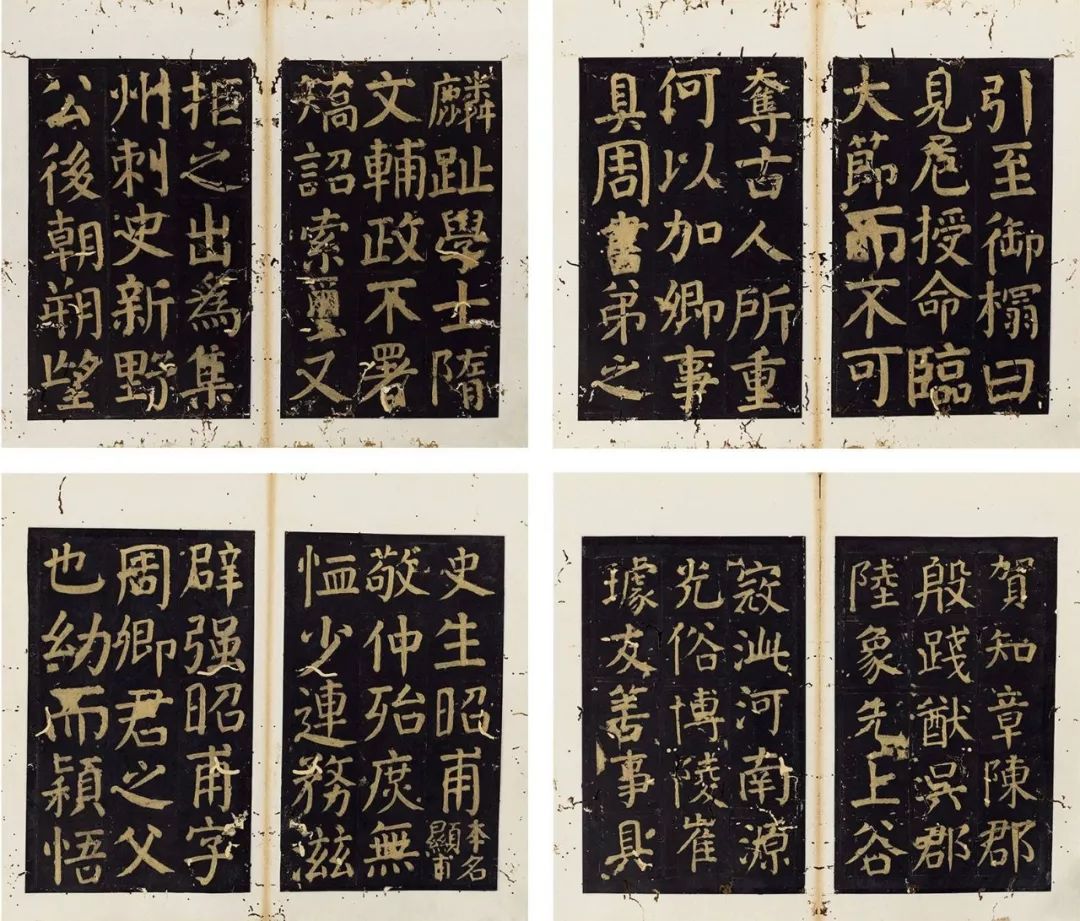 麟趾學士隋
文輔政不署
矯詔索璽又
拒之出爲集
州刺史新野
公後朝朔望
引至御榻曰
見危授命臨
大節而不可
奪古人所重
何以加卿事
具周書弟之
史生昭甫本名顯甫
敬仲殆庶無
恤少連務滋
辟强昭甫字
周卿君之父
也幼而穎悟
賀知章陳郡
殷踐猷吳郡
陸象先上谷
寇泚河南源
光俗博陵崔
璩友善事具